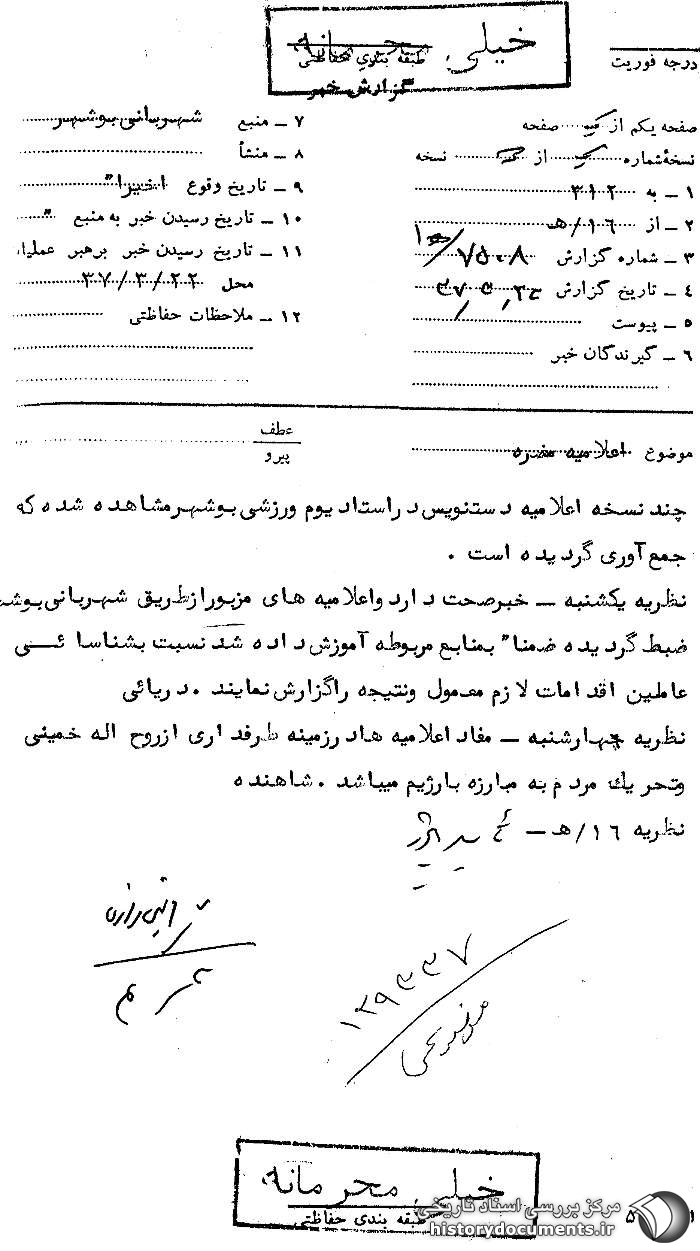 خیلی محرمانه
طبقه بندی حفاظتی
گزارش خبر
درجه فوریت
صفحه یکم از یک صفحه
نسخه شماره از نسخه
۱ ـ به ۳۱۲
۲ ـ از ۱۶/هـ
۳ ـ شماره گزارش ۷۵۰۸
۴ ـ تاریخ گزارش
۵ ـ پیوست
۶ ـ گیرندگان خبر
۷ ـ منبع شهربانی بوشهر
۸ ـ منشأ
۹ ـ تاریخ وقوع اخیرا"
۱۰ ـ تاریخ رسیدن خبر به منبع "
۱۱ ـ تاریخ رسیدن خبر برهبر عملیا
محل ۳۷/۳/۲۲
۱۲ ـ ملاحظات حفاظتی
موضوع اعلامیه مضره
عطف
پیرو
چند نسخه اعلامیه دستنویس در استادیوم ورزشی بوشهر مشاهده شده که
جمع آوری گردیده است .
نظریه یکشنبه ـ خبر صحت دارد و اعلامیه های مزبور از طریق شهربانی بوشه
ضبط گردیده ضمنا" بمنابع مربوطه آموزش داده شد نسبت بشناسائی
عاملین اقدامات لازم معمول و نتیجه را گزارش نمایند . دریائی
نظریه چهارشنبه ـ مفاد اعلامیه ها در زمینه طرفداری از روح اله خمینی
و تحریک مردم به مبارزه با رژیم میباشد . شاهنده
نظریه ۱۶/هـ ـ
۱۲۹۳۳۷
خیلی محرمانه
طبقه بندی حفاظتی
مرکز بررسی اسناد تاریخی
historydocuments.ir